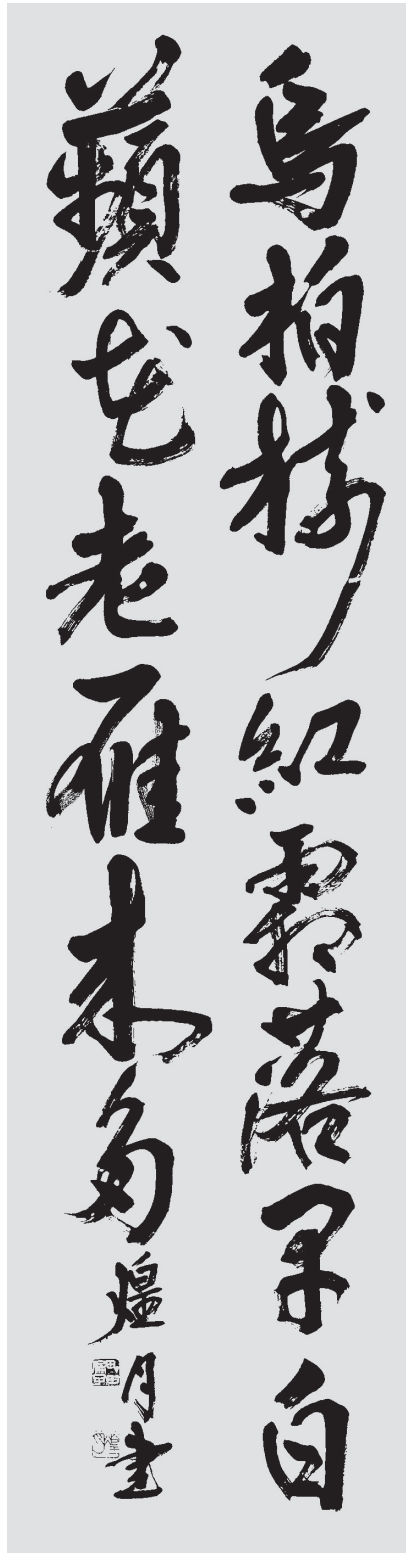 烏桕樹紅霜落早白
蘋花老雁来多
煌月書